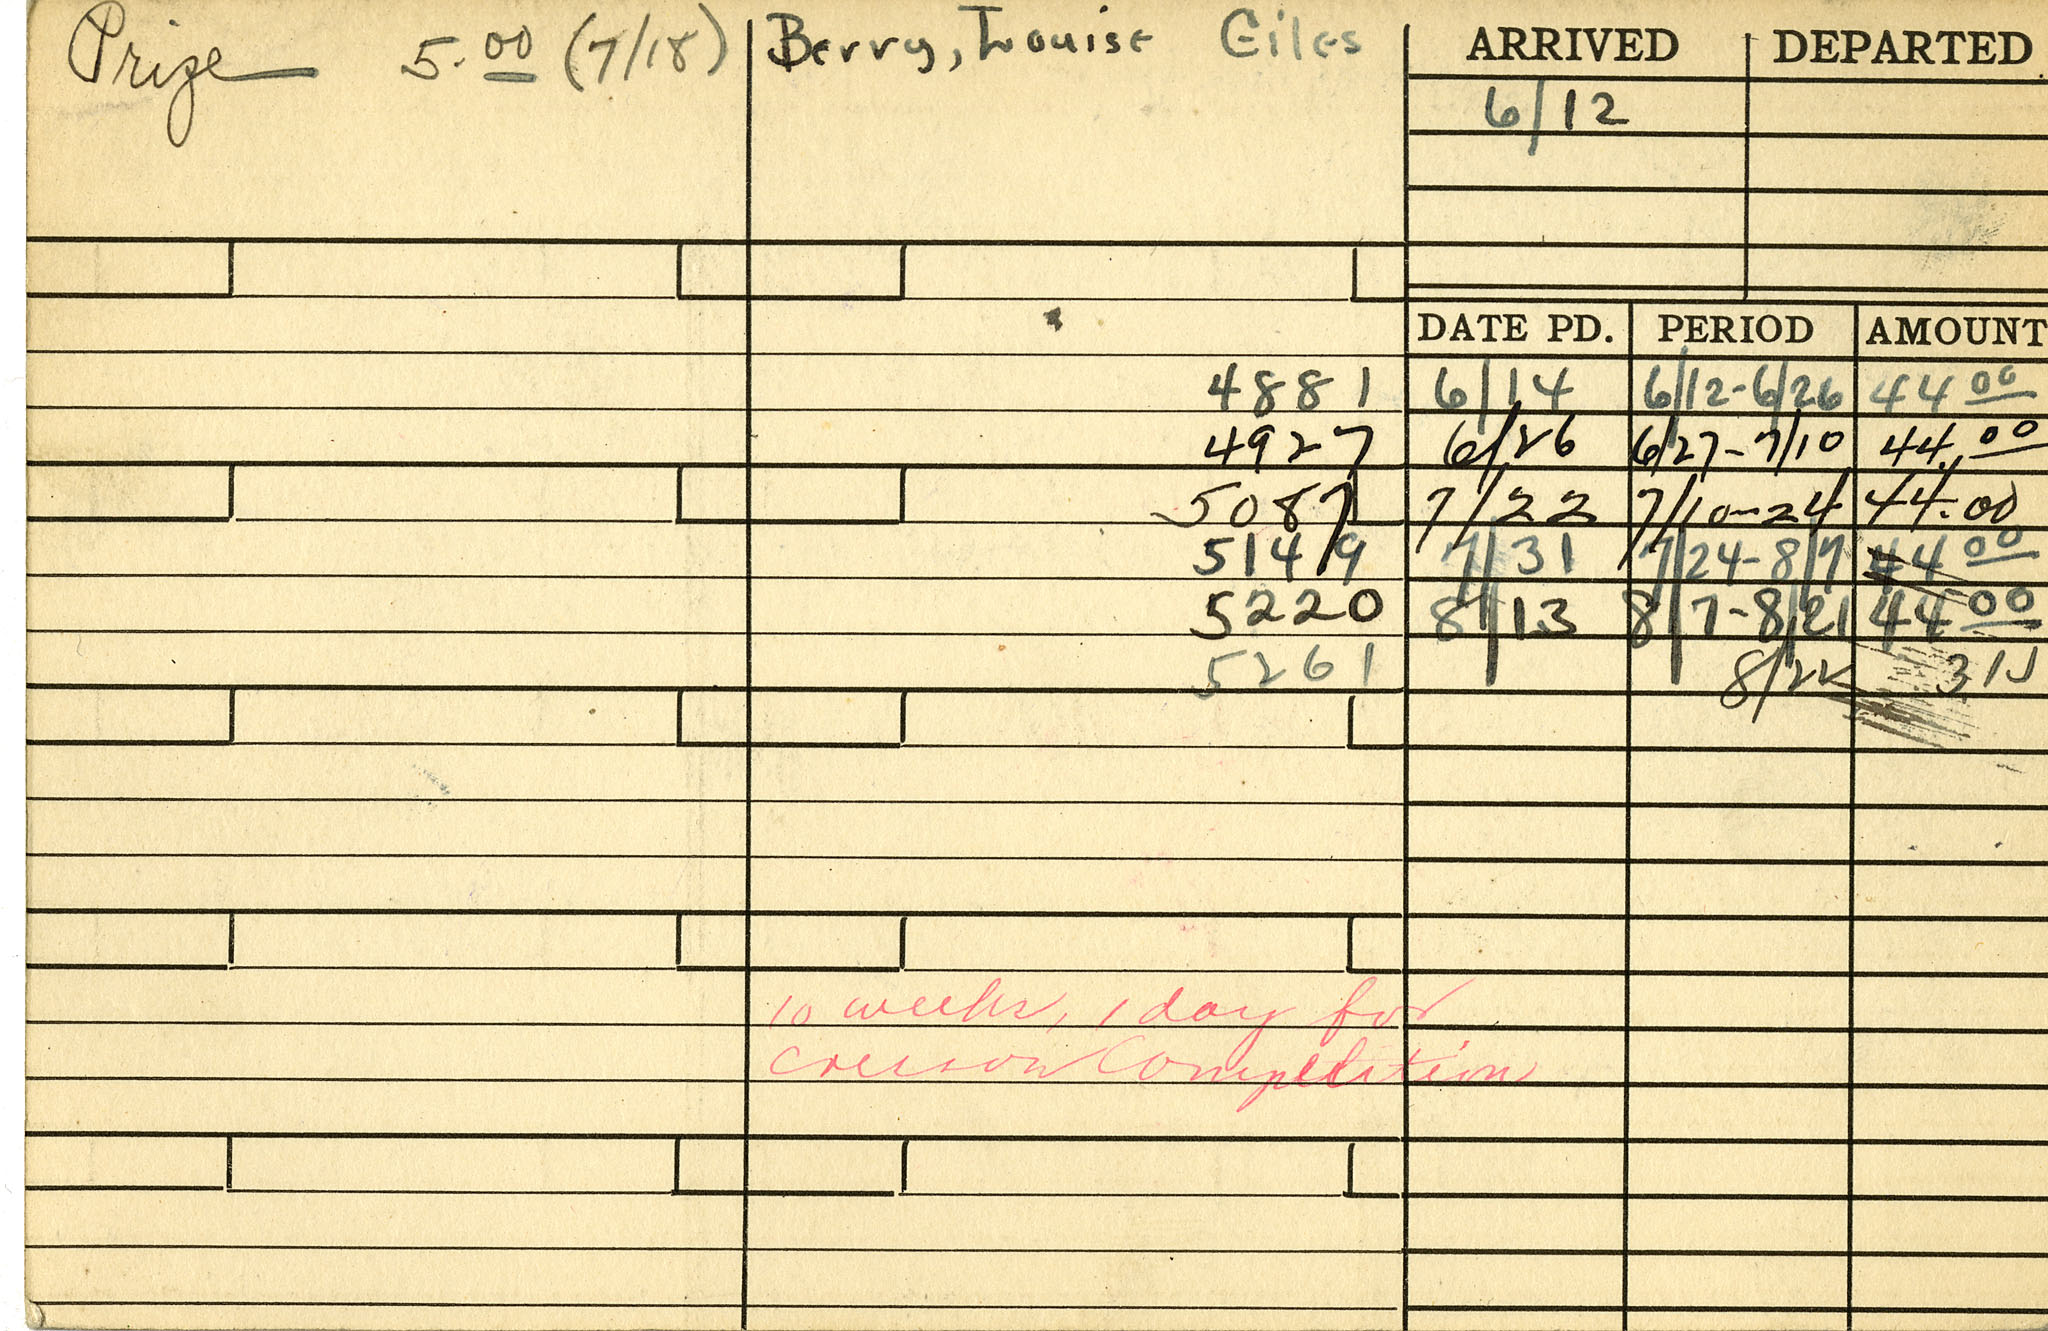 Prize 5.00 (7/18) Berry, Louise Eiles ARRIVED DEPARTED
6/12
DATE PD. PERIOD AMOUNT
4881 6/14 6/12-6/26 44 00
4927 6/26 6/27-7/10 44.00
5087 7/22 7/10-24 44.00
5149 7/31 7/24-8/7 44 00
5220 8/13 8/7-8/21 44 00
5261 8/22
10 weeks, 1 day for
Cresson Competition